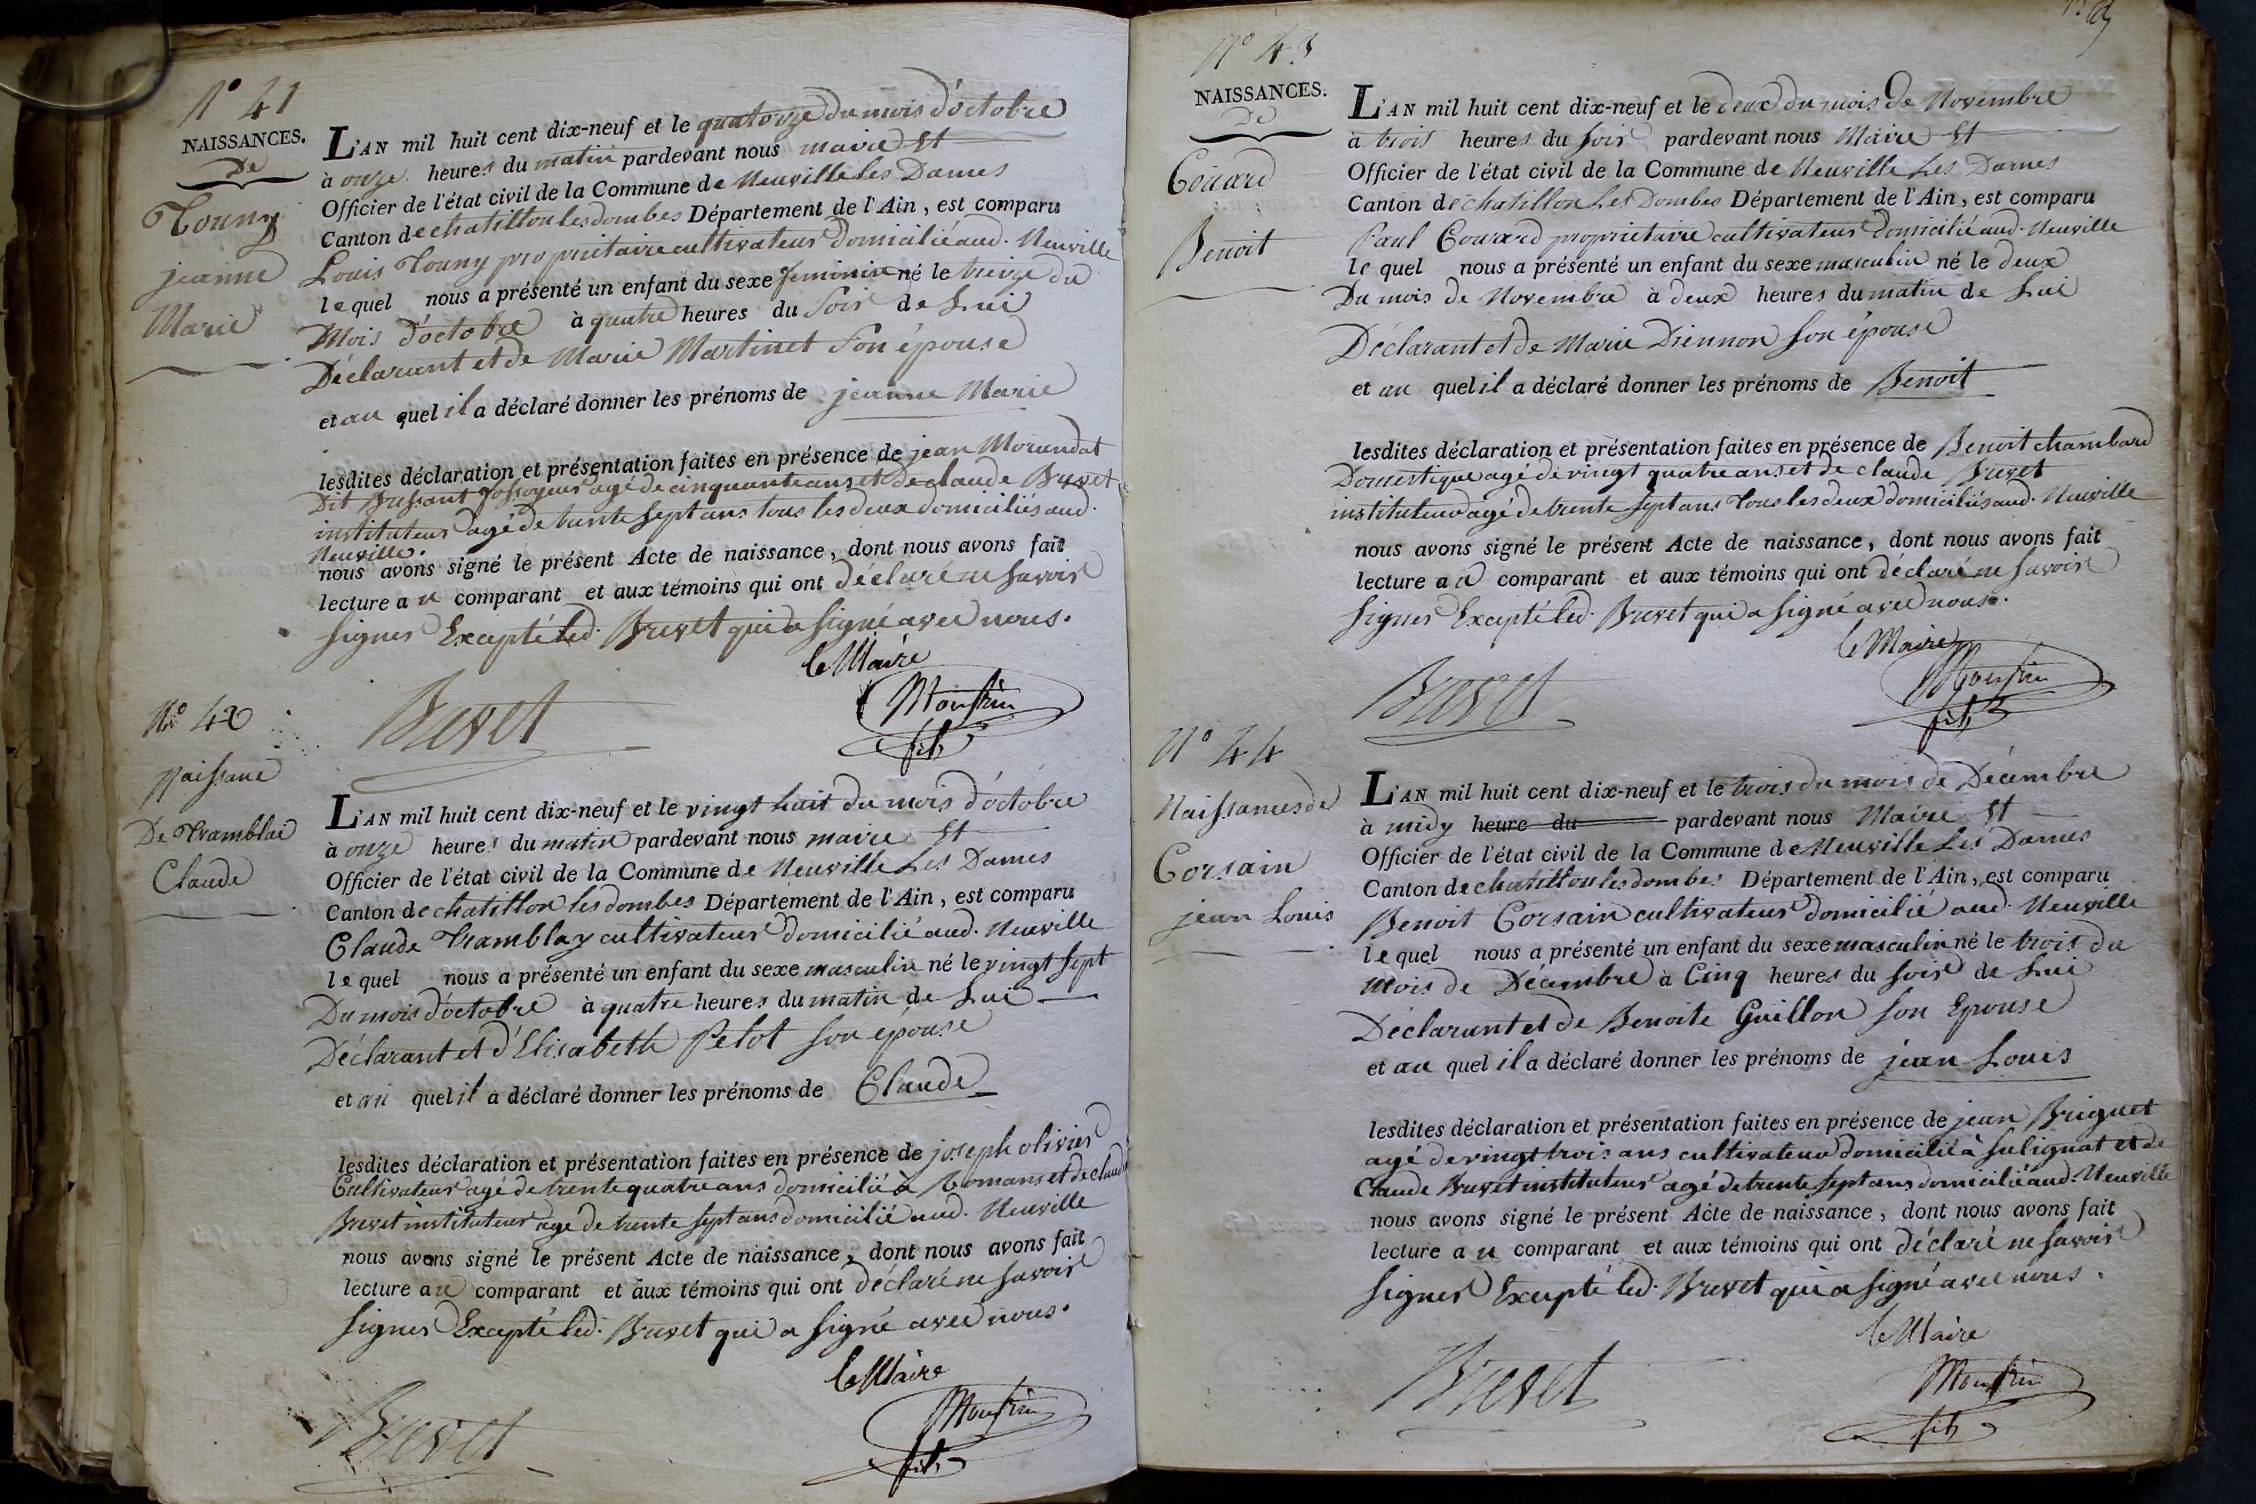 N° 41
NAISSANCES.
De
Touny
jeanne
Marie
L'AN mil huit cent dix-neuf et le quatorze du mois d'octobre
à onze heures du matin pardevant nous maire Et
Officier de l'état civil de la Commune de Neuville Les Dames
Canton de chatillon les dombes Département de l'Ain, est comparu
Louis Touny propriétaire cultivateur domicilié aud. Neuville
lequel nous a présenté un enfant du sexe feminin né le treize du
Mois d'octobre à quatre heures du soir de Lui
Déclarant et de Marie Martinet son épouse
et au quel il a déclaré donner les prénoms de jeanne Marie
lesdites déclaration et présentation faites en présence de jean Morandat
Dit Bressant fossoyeur agé de cinquante ans et de claude Buvet
instituteur agé de trente sept ans tous les deux domiciliés aud.
Neuville.
nous avons signé le présent Acte de naissance, dont nous avons fait
lecture au comparant et aux témoins qui ont déclaré ne savoir
signer Excepté led. Buvet qui a signé avec nous.
le Maire
Buvet
fils
N° 42
Naissance
De Tramblai
Claude
L'AN mil huit cent dix-neuf et le vingt huit du mois d'octobre
à onze heures du matin pardevant nous maire Et
Officier de l'état civil de la Commune de Neuville Les Dames
Canton de chatillon les dombes Département de l'Ain, est comparu
Claude Tramblay cultivateur domicilié aud. Neuville
lequel nous a présenté un enfant du sexe masculin né le vingt sept
Du mois d'octobre à quatre heures du matin de Lui
Déclarant et d'Elisabeth Pelot son épouse
et au quel il a déclaré donner les prénoms de Claude
lesdites déclaration et présentation faites en présence de joseph olivier
Cultivateur agé de trente quatre ans domicilié à Romans et de claude
Buvet instituteur agé de trente sept ans domicilié aud. Neuville
nous avons signé le présent Acte de naissance, dont nous avons fait
lecture au comparant et aux témoins qui ont déclaré ne savoir
signer Excepté led. Buvet qui a signé avec nous.
le Maire
Buvet
fils
N° 43
NAISSANCES.
De
Couard
Benoit
L'AN mil huit cent dix-neuf et le deux du mois de Novembre
à trois heures du soir pardevant nous Maire Et
Officier de l'état civil de la Commune de Neuville Les Dames
Canton de chatillon Les Dombes Département de l'Ain, est comparu
Paul Couard propriétaire cultivateur domicilié aud. Neuville
lequel nous a présenté un enfant du sexe masculin né le deux
Du mois de Novembre à deux heures du matin de Lui
Déclarant et de Marie Diennon son épouse
et au quel il a déclaré donner les prénoms de Benoit
lesdites déclaration et présentation faites en présence de Benoit chambard
Domestique agé de vingt quatre ans et de claude Buvet
instituteur agé de trente sept ans tous les deux domiciliés aud. Neuville
nous avons signé le présent Acte de naissance, dont nous avons fait
lecture au comparant et aux témoins qui ont déclaré ne savoir
signer Excepté led. Buvet qui a signé avec nous.
le Maire
Buvet
fils
N° 44
Naissances de
Corsain
jean Louis
L'AN mil huit cent dix-neuf et le trois du mois de Décembre
à midy heure du pardevant nous Maire Et
Officier de l'état civil de la Commune de Neuville Les Dames
Canton de chatillon les dombes Département de l'Ain, est comparu
Benoit Corsain cultivateur domicilié aud. Neuville
lequel nous a présenté un enfant du sexe masculin né le trois du
mois de Décembre à Cinq heures du soir de Lui
Déclarant et de Benoite Guillon son Epouse
et au quel il a déclaré donner les prénoms de jean Louis
lesdites déclaration et présentation faites en présence de jean Briguet
agé de vingt trois ans cultivateur domicilié à sulignat et de
Claude Buvet instituteur agé de trente sept ans domicilié aud. Neuville
nous avons signé le présent Acte de naissance, dont nous avons fait
lecture au comparant et aux témoins qui ont déclaré ne savoir
signer Excepté led. Buvet qui a signé avec nous.
le Maire
Buvet
fils